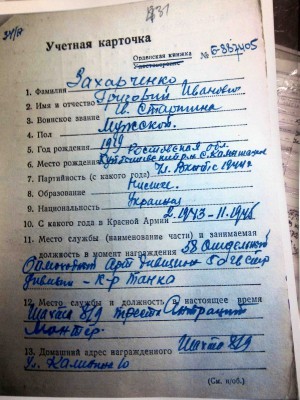 Учетная карточка
Орденская книжка
удостоверение
№ Б-867405
1. Фамилия Захарченко
2. Имя и отчество Иванович
3. Воинское звание Мл. Старшина
4. Пол Мужской
5. Год рождения 1919
6. Место рождения Ростовская обл. Куйбышевский р-н с.
7. Партийность (с какого года) 1944г
8. Образование Низшее
9. Национальность Украинец
10. С какого года в Красной Армии 1943-11.1945
11. Место службы (наименование части) и занимаемая
должность в момент награждения 58 Отдельный
Арт 5 Гв
к-р Танка
12. Место службы и должность в настоящее время
Шахта 8/9 трест Антрацит
Монтер
13. Домашний адрес награжденного Шахта 8/9
(См. н/об.)